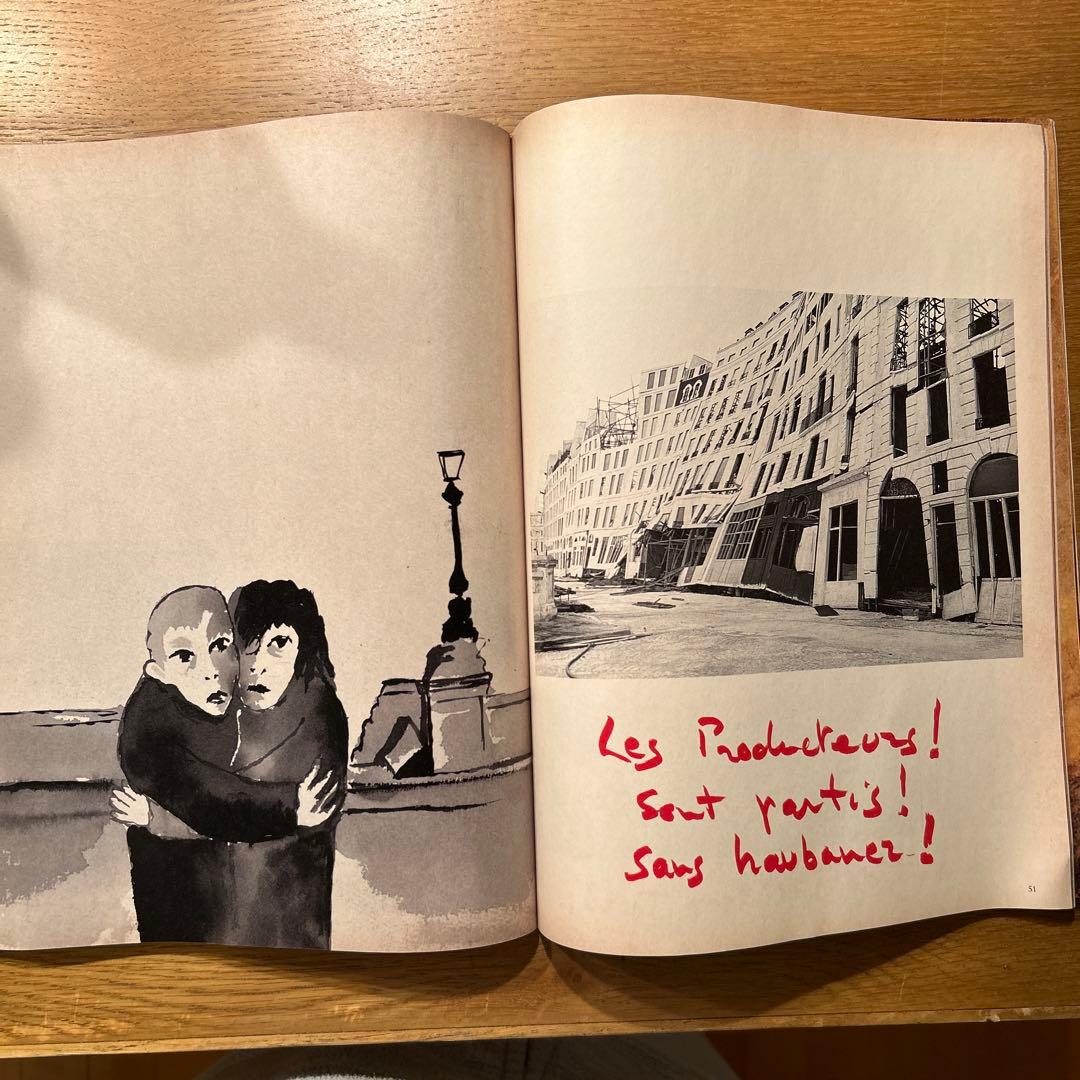 Les Producteurs!
sont partis!
sans haubaner!
51